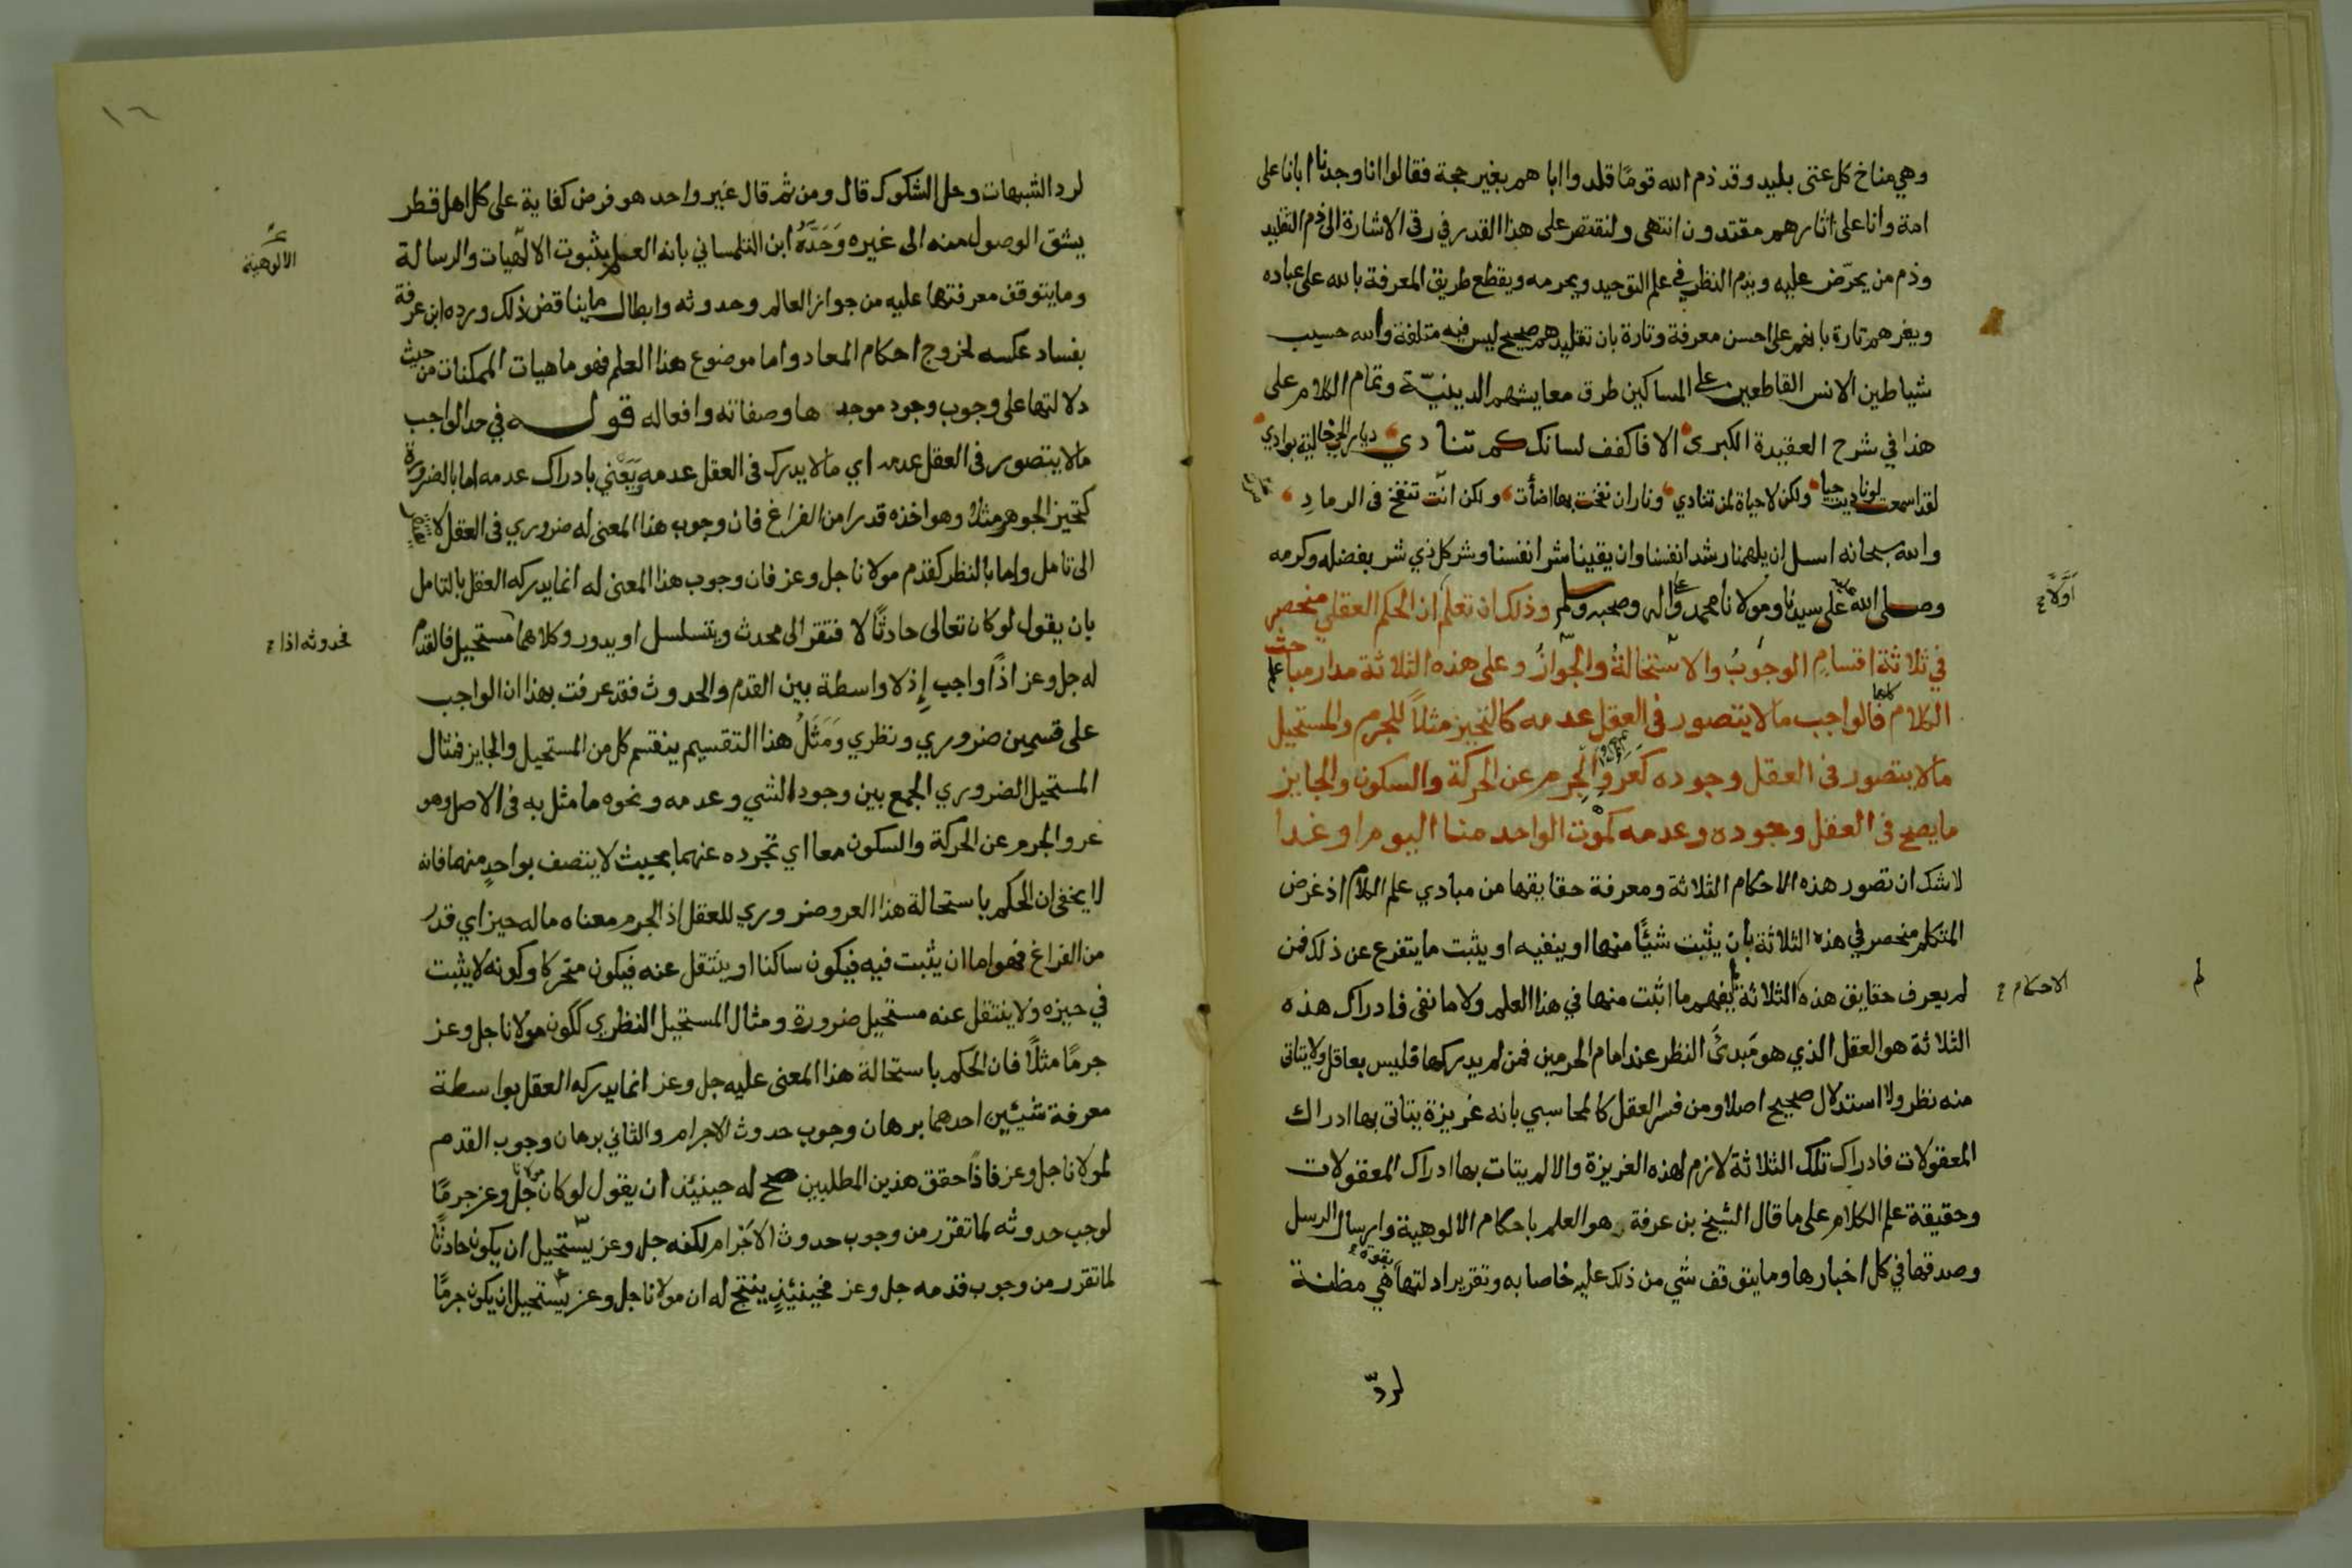 وهي مناخ كل عنتي بليد وقد ذم الله قومًا قلدوا اباهم بغير حجة فقالوا انا وجدنا ابانا على
امة وانا على اثارهم مقتدون انتهى ولنقتصر على هذا القدر في رقي الاشارة الى ذم التقليد
وذم من يحرّض عليه ويذم النظر في علم التوحيد ويحرمه ويقطع طريق المعرفة بالله على عباده
ويغرهم تارة بانهم على احسن معرفة وتارة بان تقليدهم صحيح ليس فيه متلفة والله حسيب
شياطين الانس القاطعين على المساكين طرق معايشهم الدينيّة وتمام الكلام على
هذا في شرح العقيدة الكبرى الا فاكفف لسانك كم تنادي ديار الحي خالية بوادي
لقد اسمعت لو ناديت حيا ولكن لا حياة لمن تنادي ونار ان نفخت بها اضأت ولكن انت تنفخ في الرماد
والله سبحانه اسل ان يلهمنا رشد انفسنا وان يقينا شر انفسنا وشر كل ذي شر بفضله وكرمه
وصلى الله على سيدنا ومولانا محمد وعلى اله وصحبه وسلم وذلك ان تعلم ان الحكم العقلي منحصر
اوّلا
في ثلاثة اقسام الوجوب والاستحالة والجواز وعلى هذه الثلاثة مدار مباحث علم
الكلام كلها فالواجب ما لا يتصور في العقل عدمه كالتحيز مثلا للجرم والمستحيل
ما لا يتصور في العقل وجوده كعرو الجرم عن الحركة والسكون والجايز
ما يصح في العقل وجوده وعدمه كموت الواحد منا اليوم او غدا
لا شك ان تصور هذه الاحكام الثلاثة ومعرفة حقايقها من مبادي علم الكلام اذ غرض
المتكلم منحصر في هذه الثلاثة بأن يثبت شيًا منها او ينفيه او يثبت ما يتفرع عن ذلك فمن
لم يعرف حقايق هذه الثلاثة لم يفهم ما اثبت منها في هذا العلم ولا ما نفى فادراك هذه
الاحكام
الثلاثة هو العقل الذي هو مَبدئُ النظر عند امام الحرمين فمن لم يدركها فليس بعاقل ولا يتاتى
منه نظر ولا استدلال صحيح اصلا ومن فسر العقل كالمحاسبي بانه غريزة يتاتى بها ادراك
المعقولات فادراك تلك الثلاثة لازم لهذه الغريزة والا لم يتات بها ادراك المعقولات
وحقيقة علم الكلام على ما قال الشيخ بن عرفة هو العلم باحكام الالوهية وارسال الرسل
وصدقها في كل اخبارها وما يتوقف شي من ذلك عليه خاصا به وتقرير ادلتها بقوة هي مظنة
لردّ
١٦
لرد الشبهات وحل الشكوك قال ومن ثم قال غير واحد هو فرض كفاية على كل اهل قطر
يشق الوصول منه الى غيره وَحَدَّهُ ابن التلمساني بانه العلم بثبوت الالهيات والرسالة
الالوهية
وما يتوقف معرفتها عليه من جواز العالم وحدوثه وابطال ما يناقض ذلك ورده ابن عرفة
بفساد عكسه لخروج احكام المعاد واما موضوع هذا العلم فهو ماهيات الممكنات من حيث
دلالتها على وجوب وجود موجدها وصفاته وافعاله قوله في حد الواجب
ما لا يتصور في العقل عدمه اي ما لا يدرك في العقل عدمه وَيَعْني بادراك عدمه اما بالضرورة
كتحيز الجوهر مثلا وهو اخذه قدرا من الفراغ فان وجوب هذا المعنى له ضروري في العقل لا
الى تامل واما بالنظر كقدم مولانا جل وعز فان وجوب هذا المعنى له انما يدركه العقل بالتامل
بان يقول لو كان تعالى حادثًا لافتقر الى محدث ويتسلسل او يدور وكلاهما مستحيل فالقدم
فحدوثه اذا
له جل وعز اذًا واجب إذ لا واسطة بين القدم والحدوث فقد عرفت بهذا ان الواجب
على قسمين ضروري ونظري وَمَثَلُ هذا التقسيم ينقسم كل من المستحيل والجايز فمثال
المستحيل الضروري الجمع بين وجود الشي وعدمه ونحوه ما مثل به في الاصل وهو
عرو الجرم عن الحركة والسكون معا اي تجرده عنهما بحيث لا يتصف بواحدٍ منهما فانه
لا يخفى ان الحكم باستحالة هذا العرو ضروري للعقل اذ الجرم معناه ما له حيز اي قدر
من الفراغ فهو اما ان يثبت فيه فيكون ساكنا او ينتقل عنه فيكون متحركا وكونه لا يثبت
في حيزه ولا ينتقل عنه مستحيل ضرورة ومثال المستحيل النظري ككون مولانا جل وعز
جرمًا مثلًا فان الحكم باستحالة هذا المعنى عليه جل وعز انما يدركه العقل بواسطة
معرفة شيئين احدهما برهان وجوب حدوث الاجرام والثاني برهان وجوب القدم
لمولانا جل وعز فاذًا حقق هذين المطلبين صح له حينئذ ان يقول لو كان مولانا جل وعز جرمًا
لوجب حدوثه لما تقرر من وجوب حدوث الاجرام لكنه جل وعز يستحيل ان يكون حادثًا
لما تقرر من وجوب قدمه جل وعز فحينئذٍ ينتج له ان مولانا جل وعز يستحيل ان يكون جرمًا